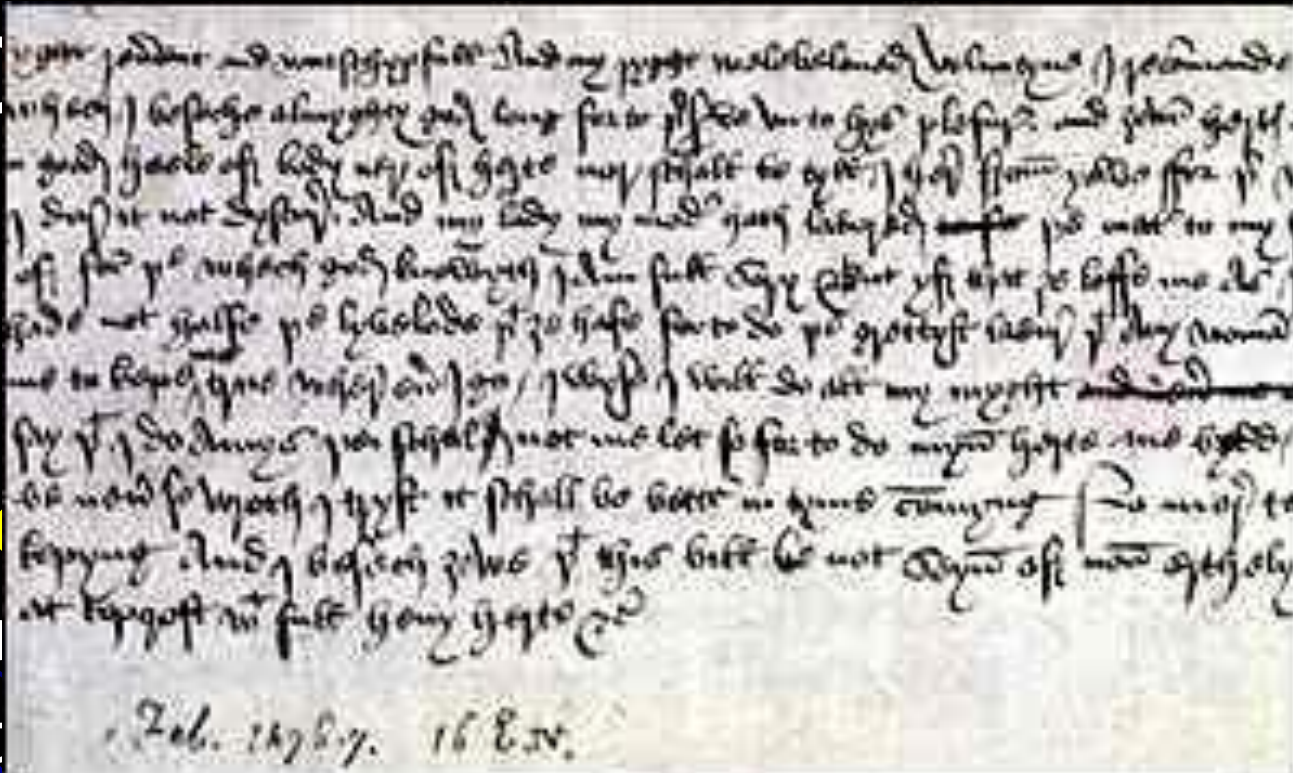 reu͛ent and wurschypfull And my ryght welebeloued Voluntyne I recōmande
whech I beseche almyghty god long for to p͛s͛ve vn to hys plesur͛ and ȝour hertꝭ
good heele of body ner of herte nor schall be tyll I her͛ from ȝowe ffor þ͛
I dar͛ it not dyscur͛ And my lady my mod͛ hath labored þe mat͛ to my
of for þe whech god knowyth I Am full sory But yf that ȝe loffe me As
hade not halfe þe lyvelode þt ȝe hafe for to do þe grettyst labur͛ þt Any woman
me to kepe me true wher͛ eu͛ I go I wyse I will do all my myght
say þt I do Amys þei schal not me let so for to do myn herte me bydds
be neu͛ so wroth I tryst it schall be bett͛ in tyme cōmyng No mor͛ to
kepyng And I besech ȝowe þt this bill be not seyn of non erthely
at Topcroft wt full hevy herte &c
Feb. 1476.7. 16 E.IV.